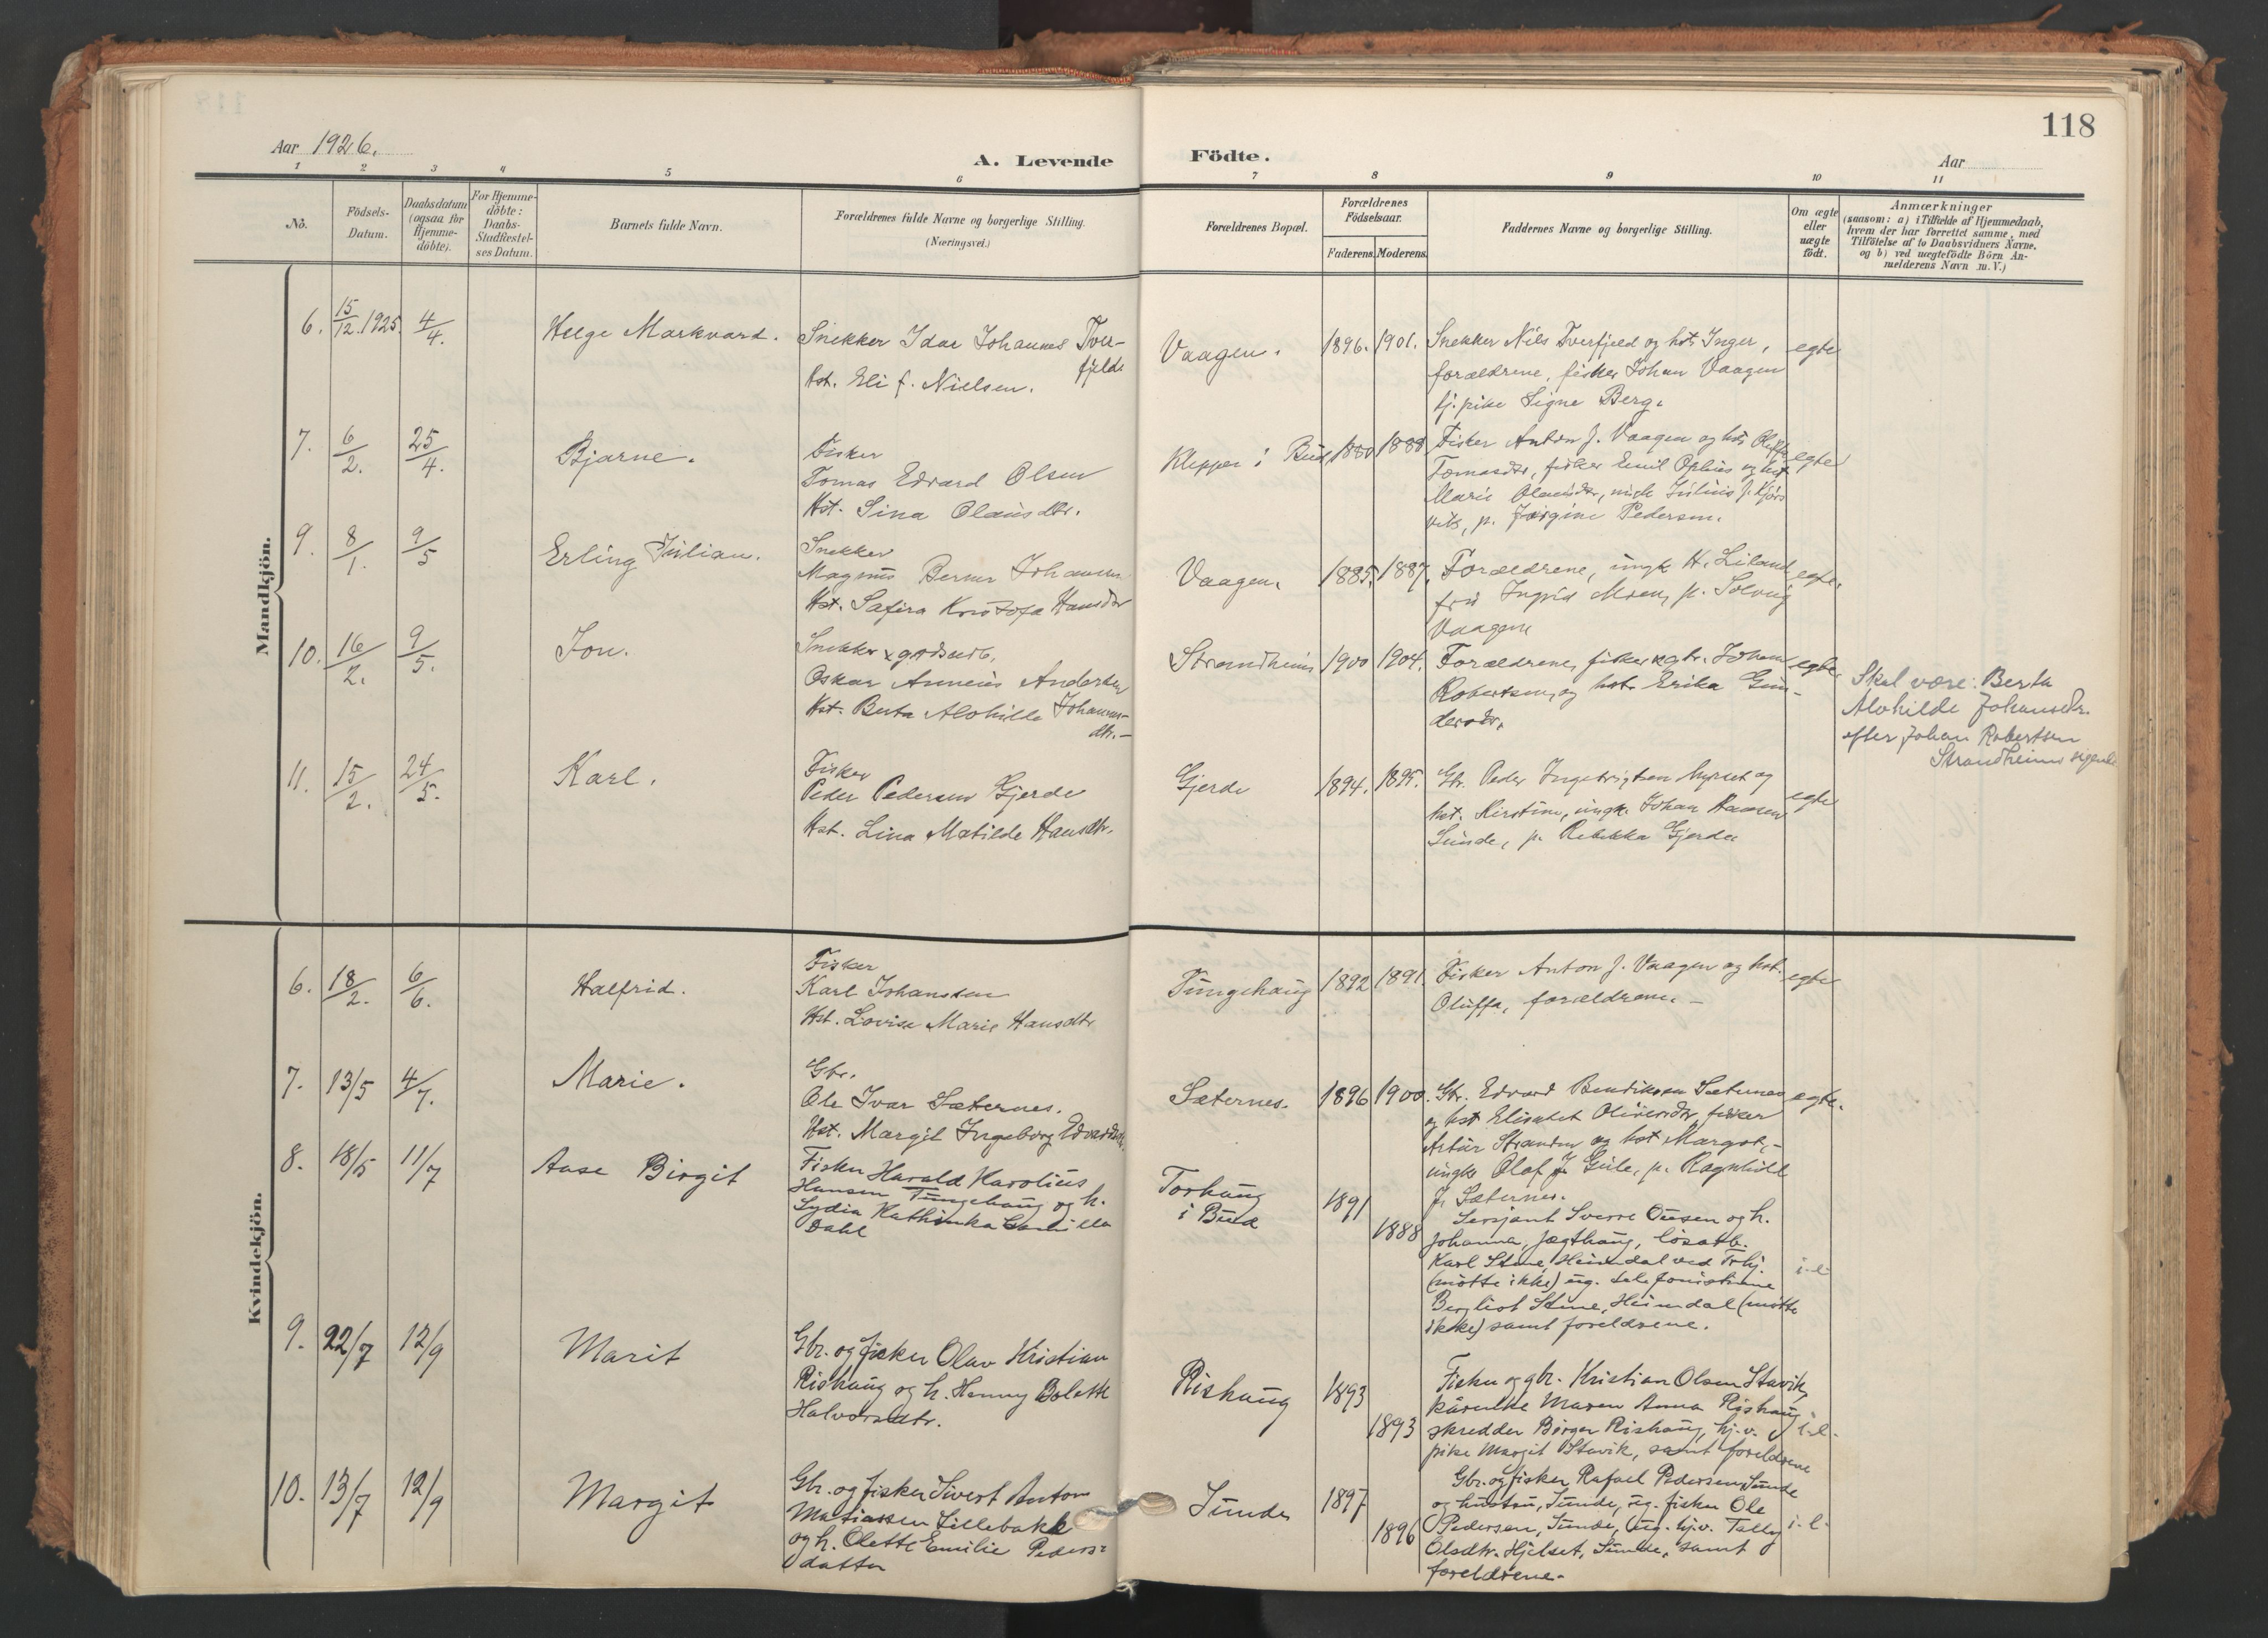 118
Aar 1926.
A. Levende Födte.
Aar
1 2 3 4 5 6 7 8 9 10 11
No.
Födsels-
Datum.
Daabsdatum
(ogsaa for
Hjemme-
döbte).
For Hjemme-
döbte:
Daabs-
Stadfæstel-
ses Datum.
Barnets fulde Navn.
Forældrenes fulde Navne og borgerlige Stilling.
(Næringsvei.)
Forældrenes Bopæl.
Forældrenes
Födselsaar.
Faderens. Moderens.
Faddernes Navne og borgerlige Stilling.
Om ægte
eller
uægte
födt.
Anmærkninger
(saasom: a) i Tilfælde af Hjemmedaab,
hvem der har forrettet samme, med
Tilföielse af to Daabsvidners Navne,
og b) ved uægtefödte Börn An-
melderens Navn m. V.)
Mandkjön.
6. 15/12.1925. 4/4.
Helge Markvard.
Snekker Idar Johannes Tver-
fjelde
Hst. Eli f. Nielsen.
Vaagen.
1896. 1901.
Snekker Nils Tverfjeld og hst. Inger,
forældrene, fisker Johan Vaagen
tj. pike Signe Berg.
egte
7. 6/2. 25/4.
Bjarne.
Fisker
Tomas Edvard Olsen
Hst. Sina Olausdtr.
Klepper i Bud,
1880 1888
Fisker Anton J. Vaagen og hst. Oluffa
Tomasdtr, fisker Emil og hst
Marie Olausdtr, Julius J.
vik, p. Jørgine Pedersen.
egte
9. 8/1. 9/5
Erling Julian.
Snekker
Magnus Berner Johansen
Hst. Safira Kristofa Hansdtr
Vaagen.
1885. 1887.
Forældrene, ungk H. Liland
fru Ingrid Moen, p. Solveig
Vaagen
egte.
10. 16/2. 9/5.
Jon.
Snekker x
Oskar Anneus Andersen
Hst. Berta Alvhilde Johannes-
dtr.-
Strandheim
1900 1904.
Forældrene, fisker x gbr. Johan
Robertsen, og hst. Erika Gun-
dersdtr.
egte
Skal være: Berta
Alvhilde Johansdtr.
efter Johan Robertsen
Strandheims sigende
11. 15/2. 24/5.
Karl.
Fisker
Peder Pedersen Gjerde
Hst. Lina Matilde Hansdtr.
Gjerde
1894. 1895.
Gbr. Peder Ingebrigtsen og
hst. Kirstine, ungk. Johan Hansen
Sunde, p. Rebekka Gjerde
egte
Kvindekjön.
6. 18/2. 6/6.
Halfrid.
Fisker
Karl Johansen
Hst. Lovise Marie Hansdtr
Tungehaug
1892 1891.
Fisker Anton J. Vaagen og hst.
Oluffa, forældrene. -
egte
7. 13/5 4/7.
Marie.
Gbr.
Ole Ivar Sæternes.
Hst. Margit Ingeborg Edvardsdtr.
Sæternes.
1896 1900.
Gbr. Edvard Bendiksen Sæternes
og hst Elisabet Oliversdtr, fisker
Artur Strand og hst Margot,-
ungk Olaf J. Gule, p. Ragnhild
J. Sæternes.
egte.
8. 18/5 11/7
Aase Birgit
Fisker Harald Karolius
Hansen Tungehaug og h.
Lydia Kathinka Camilla
Dahl
Torhaug
i Bud
1891
1888
Sersjant Sverre Ousen og h.
Johanna, Jægthaug, løsarb.
Karl Stene, Heimdal ved Trhj.
(møtte ikke) ug. telefonistinne
Bergliot Stene, Heimdal (møtte
ikke) samt foreldrene.
i-l
9. 22/7 12/9
Marit
Gbr. og fisker Olav Kristian
Rishaug og h. Henny Bolette
Halvorsdtr.
Rishaug
1893
1893
Fisker og gbr. Kristian Olsen Stavik,
kårenke Maren Anna Rishaug
skredder Børger Rishaug, hj.v.
pike Margit Stavik, samt foreldrene
i-l-
10. 13/7 12/9
Margit
Gbr. og fisker Sivert Anton
Matiassen Lillebakk
og h. Olette Emilie Peders=
datter
Sunde
1897
1896
Gbr. og fisker Rafael Pedersen Sunde
og hustru, Sunde, ug. fisker Ole
Pedersen, Sunde, ug. hj.v. Tally
Olsdtr. Hjelset, Sunde, samt
foreldrene-
i-l-